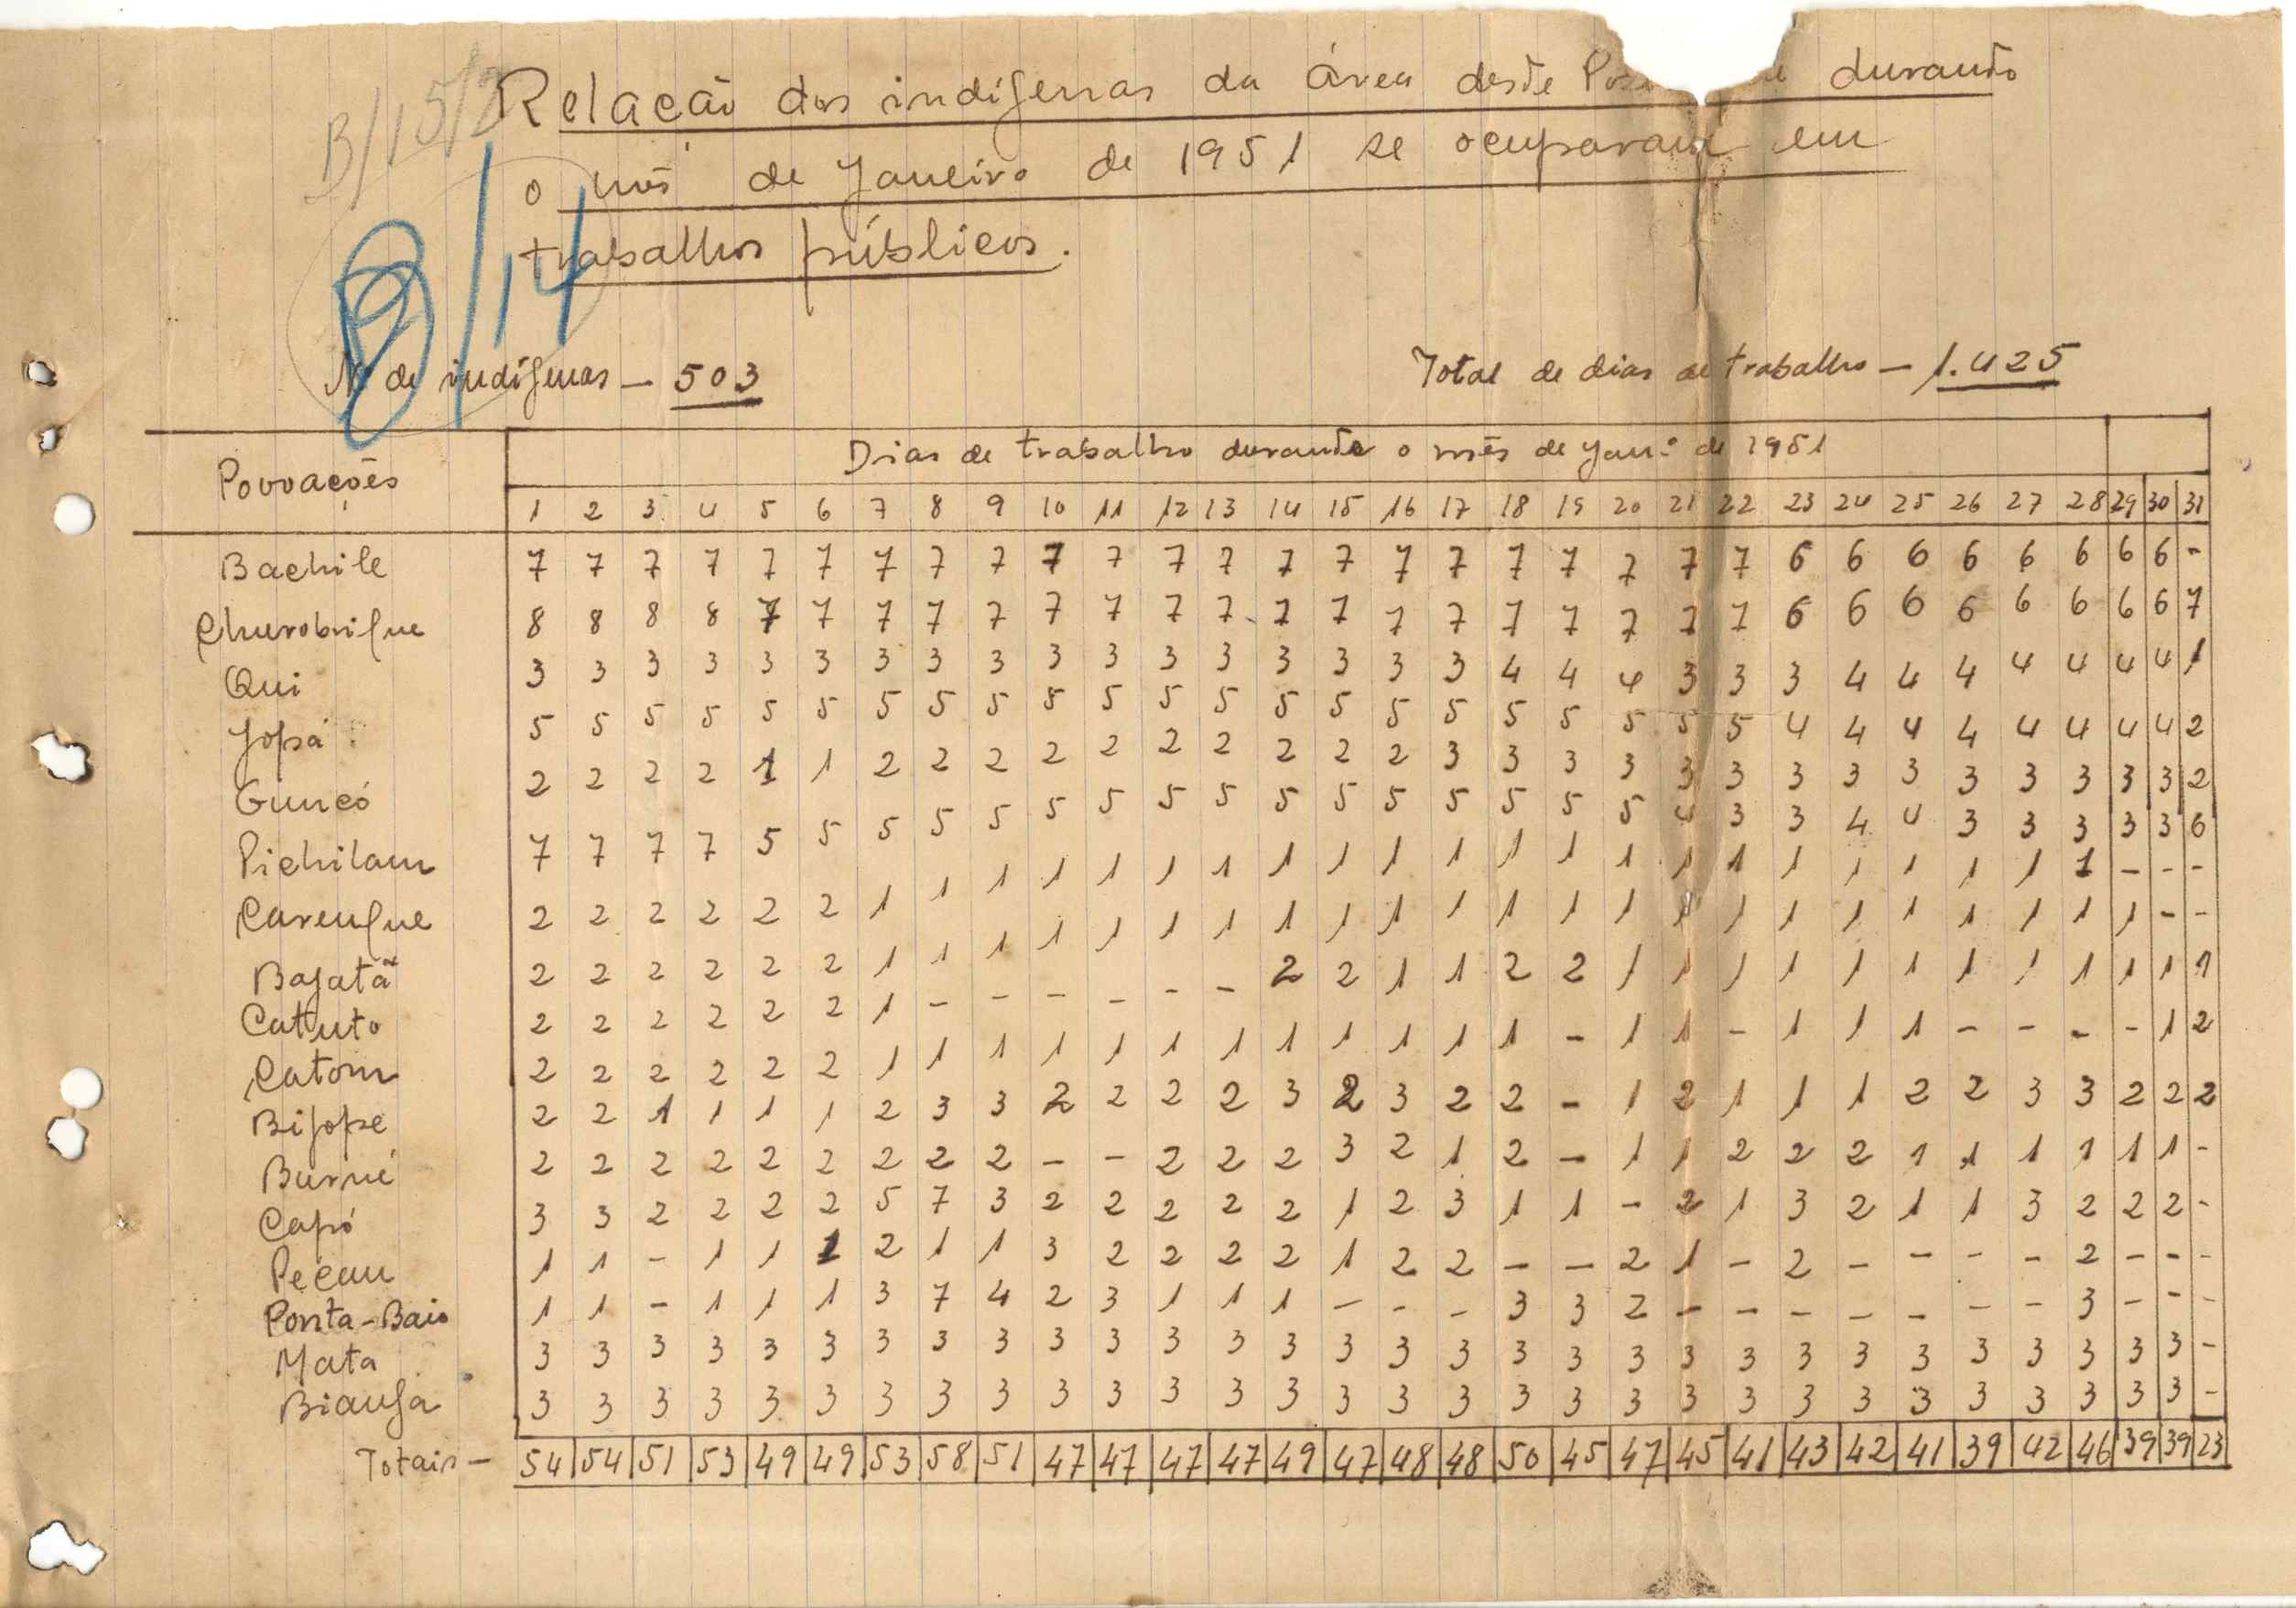 B/15/2
Relação dos indígenas da área deste Pos durante
o mês de Janeiro de 1951 se ocuparam em
trabalhos públicos.
B/14
Nº de indígenas — 503
Total de dias de trabalho — 1.425
Povoações
Dias de trabalho durante o mês de Janº de 1951
1 2 3 4 5 6 7 8 9 10 11 12 13 14 15 16 17 18 19 20 21 22 23 24 25 26 27 28 29 30 31
Bachile 7 7 7 7 7 7 7 7 7 7 7 7 7 7 7 7 7 7 7 7 7 7 6 6 6 6 6 6 6 6 -
Churobrique 8 8 8 8 7 7 7 7 7 7 7 7 7 7 7 7 7 7 7 7 7 7 6 6 6 6 6 6 6 6 7
Qui 3 3 3 3 3 3 3 3 3 3 3 3 3 3 3 3 3 4 4 4 3 3 3 4 4 4 4 4 4 4 1
Jopá 5 5 5 5 5 5 5 5 5 5 5 5 5 5 5 5 5 5 5 5 5 5 4 4 4 4 4 4 4 4 2
Guncó 2 2 2 2 1 1 2 2 2 2 2 2 2 2 2 2 3 3 3 3 3 3 3 3 3 3 3 3 3 3 2
Pichilam 7 7 7 7 5 5 5 5 5 5 5 5 5 5 5 5 5 5 5 5 4 3 3 4 4 3 3 3 3 3 6
Carengue 2 2 2 2 2 2 1 1 1 1 1 1 1 1 1 1 1 1 1 1 1 1 1 1 1 1 1 1 - - -
Bajatã 2 2 2 2 2 2 1 1 1 1 1 1 1 1 1 1 1 1 1 1 1 1 1 1 1 1 1 1 1 - -
Catuto 2 2 2 2 2 2 1 - - - - - - 2 2 1 1 2 2 1 1 1 1 1 1 1 1 1 1 1 1
Catom 2 2 2 2 2 2 1 1 1 1 1 1 1 1 1 1 1 1 - 1 1 - 1 1 1 - - - - 1 2
Bijope 2 2 1 1 1 1 2 3 3 2 2 2 2 3 2 3 2 2 - 1 2 1 1 1 2 2 3 3 2 2 2
Burné 2 2 2 2 2 2 2 2 2 - - 2 2 2 3 2 1 2 - 1 1 2 2 2 1 1 1 1 1 1 -
Capó 3 3 2 2 2 2 5 7 3 2 2 2 2 2 1 2 3 1 1 - 2 1 3 2 1 1 3 2 2 2 -
Pecau 1 1 - 1 1 1 2 1 1 3 2 2 2 2 1 2 2 - - 2 1 - 2 - - - - 2 - - -
Ponta-Baio 1 1 - 1 1 1 3 7 4 2 3 1 1 1 - - - 3 3 2 - - - - - - - 3 - - -
Mata 3 3 3 3 3 3 3 3 3 3 3 3 3 3 3 3 3 3 3 3 3 3 3 3 3 3 3 3 3 3 -
Bianga 3 3 3 3 3 3 3 3 3 3 3 3 3 3 3 3 3 3 3 3 3 3 3 3 3 3 3 3 3 3 -
Totais — 54 54 51 53 49 49 53 58 51 47 47 47 47 49 47 48 48 50 45 47 45 41 43 42 41 39 42 46 39 39 23